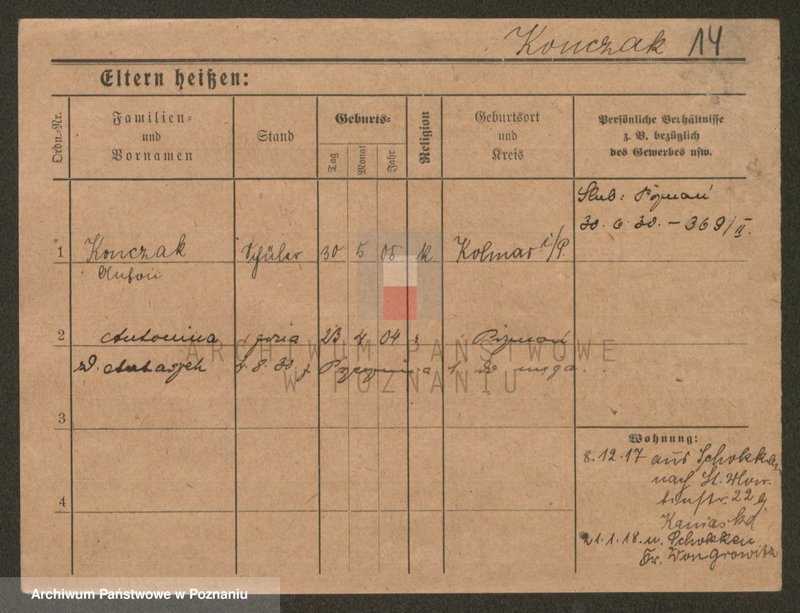 Konczak 14
Eltern heißen:
Ordn.-Nr.
Familien-
und
Vornamen
Stand
Geburts-
Tag
Monat
Jahr
Religion
Geburtsort
und
Kreis
Persönliche Verhältnisse
z. B. bezüglich
des Gewerbes usw.
Ślub: Poznań
30. 6 30. – 369/II.
1 Konczak Schüler 30 5 05 k Kolmar i/P.
Anton
2 Antonina żona 23 04 Poznań
z d. 4. 8. 30 z do męża.
3
Wohnung:
8.12.17 aus Schokken
nach St.
22
4
21.1.18. n. Schokken
Kr. Wongrowitz
ARCHIWUM PAŃSTWOWE
W POZNANIU
Archiwum Państwowe w Poznaniu